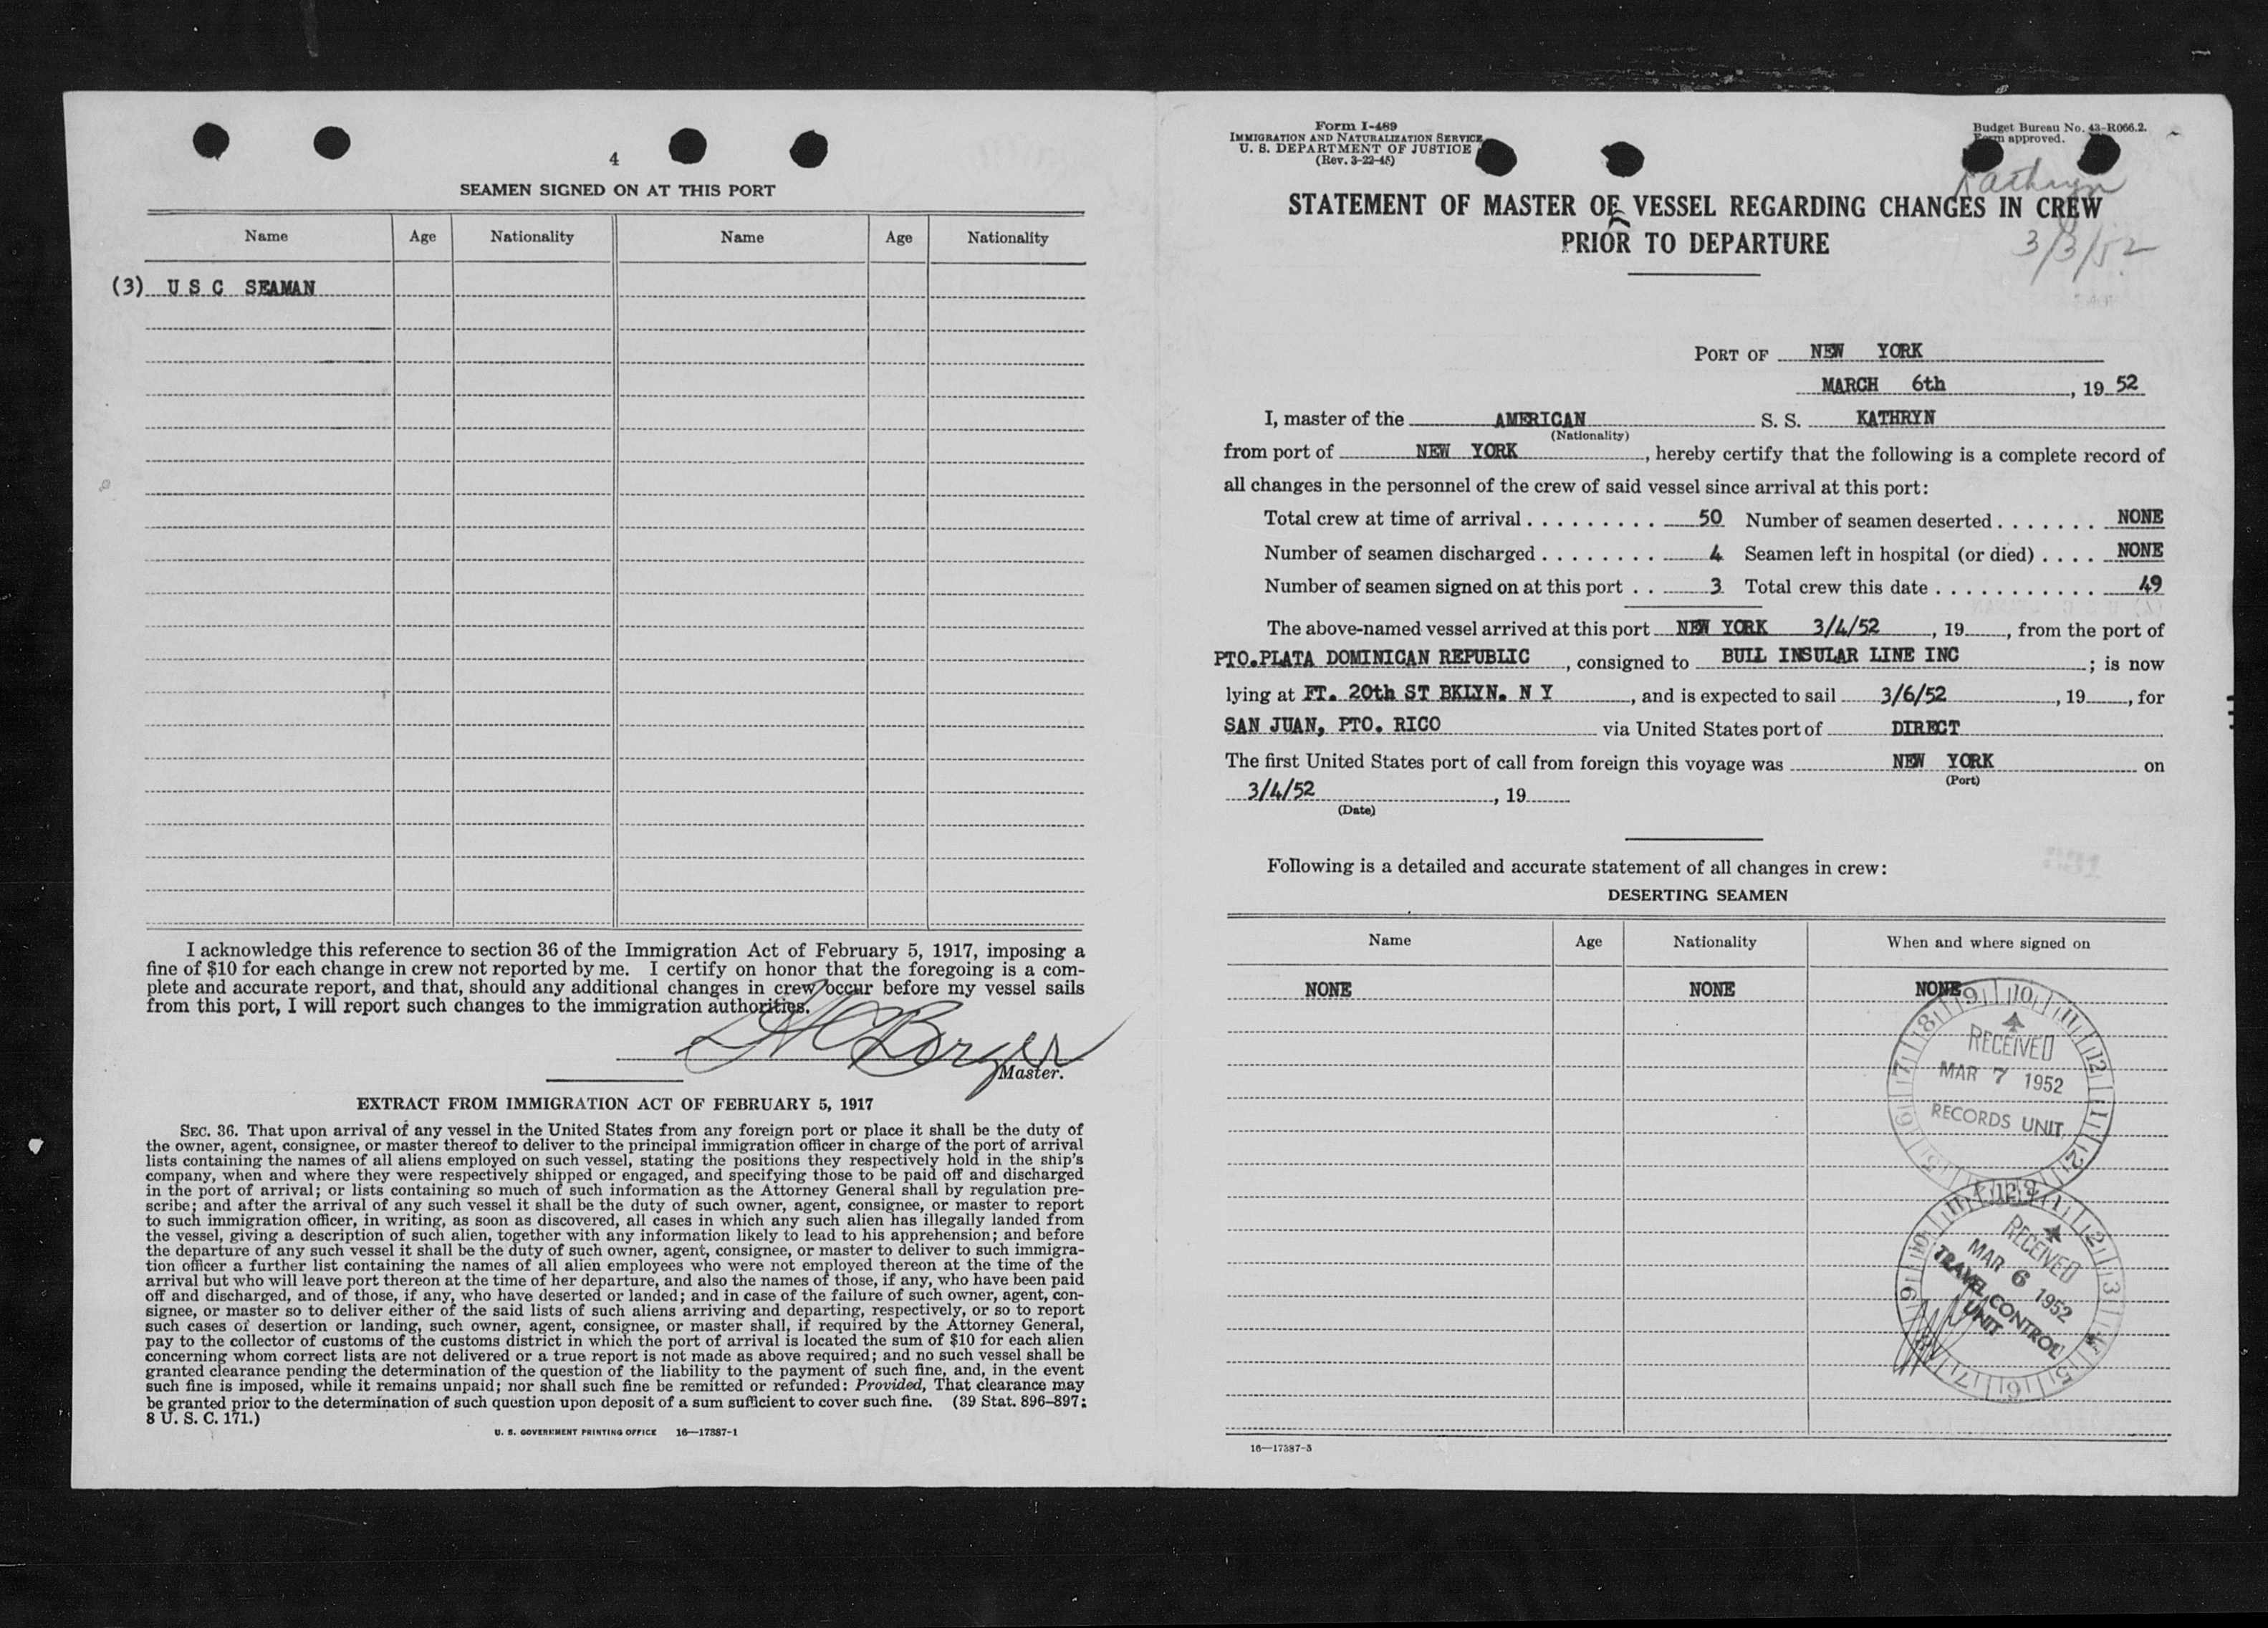 4
SEAMEN SIGNED ON AT THIS PORT
Name Age Nationality Name Age Nationality
(3) U S C SEAMAN
I acknowledge this reference to section 36 of the Immigration Act of February 5, 1917, imposing a
fine of $10 for each change in crew not reported by me. I certify on honor that the foregoing is a com-
plete and accurate report, and that, should any additional changes in crew occur before my vessel sails
from this port, I will report such changes to the immigration authorities.
Master.
EXTRACT FROM IMMIGRATION ACT OF FEBRUARY 5, 1917
SEC. 36. That upon arrival of any vessel in the United States from any foreign port or place it shall be the duty of
the owner, agent, consignee, or master thereof to deliver to the principal immigration officer in charge of the port of arrival
lists containing the names of all aliens employed on such vessel, stating the positions they respectively hold in the ship's
company, when and where they were respectively shipped or engaged, and specifying those to be paid off and discharged
in the port of arrival; or lists containing so much of such information as the Attorney General shall by regulation pre-
scribe; and after the arrival of any such vessel it shall be the duty of such owner, agent, consignee, or master to report
to such immigration officer, in writing, as soon as discovered, all cases in which any such alien has illegally landed from
the vessel, giving a description of such alien, together with any information likely to lead to his apprehension; and before
the departure of any such vessel it shall be the duty of such owner, agent, consignee, or master to deliver to such immigra-
tion officer a further list containing the names of all alien employees who were not employed thereon at the time of the
arrival but who will leave port thereon at the time of her departure, and also the names of those, if any, who have been paid
off and discharged, and of those, if any, who have deserted or landed; and in case of the failure of such owner, agent, con-
signee, or master so to deliver either of the said lists of such aliens arriving and departing, respectively, or so to report
such cases of desertion or landing, such owner, agent, consignee, or master shall, if required by the Attorney General,
pay to the collector of customs of the customs district in which the port of arrival is located the sum of $10 for each alien
concerning whom correct lists are not delivered or a true report is not made as above required; and no such vessel shall be
granted clearance pending the determination of the question of the liability to the payment of such fine, and, in the event
such fine is imposed, while it remains unpaid; nor shall such fine be remitted or refunded: Provided, That clearance may
be granted prior to the determination of such question upon deposit of a sum sufficient to cover such fine. (39 Stat. 896–897;
8 U. S. C. 171.)
U. S. GOVERNMENT PRINTING OFFICE 16—17387-1
Form I-489
IMMIGRATION AND NATURALIZATION SERVICE
U. S. DEPARTMENT OF JUSTICE
(Rev. 3-22-45)
Budget Bureau No. 43-R066.2.
Form approved.
Kathryn
3/3/52
STATEMENT OF MASTER OF VESSEL REGARDING CHANGES IN CREW
PRIOR TO DEPARTURE
PORT OF NEW YORK
MARCH 6th, 19 52
I, master of the AMERICAN S. S. KATHRYN
(Nationality)
from port of NEW YORK, hereby certify that the following is a complete record of
all changes in the personnel of the crew of said vessel since arrival at this port:
Total crew at time of arrival . . . . . . . . . 50 Number of seamen deserted . . . . . . . NONE
Number of seamen discharged . . . . . . . . 4 Seamen left in hospital (or died) . . . . NONE
Number of seamen signed on at this port . . 3 Total crew this date . . . . . . . . . . . 49
The above-named vessel arrived at this port NEW YORK 3/4/52, 19, from the port of
PTO.PLATA DOMINICAN REPUBLIC, consigned to BULL INSULAR LINE INC; is now
lying at FT. 20th ST BKLYN. N Y, and is expected to sail 3/6/52, 19, for
SAN JUAN, PTO. RICO via United States port of DIRECT
The first United States port of call from foreign this voyage was NEW YORK on
(Port)
3/4/52, 19
(Date)
Following is a detailed and accurate statement of all changes in crew:
DESERTING SEAMEN
Name Age Nationality When and where signed on
NONE NONE NONE
RECEIVED
MAR 7 1952
RECORDS UNIT
RECEIVED
MAR 6 1952
TRAVEL CONTROL
UNIT
16—17387-3